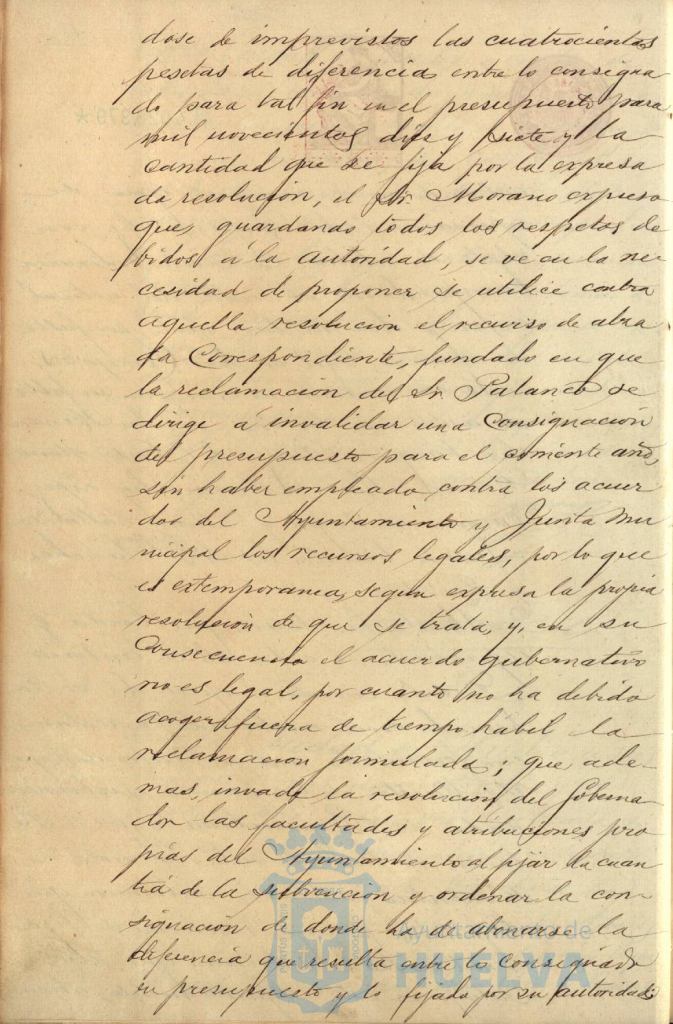 dose de imprevistos las cuatrocientas
pesetas de diferencia entre lo consigna
do para tal fin en el presupuesto para
mil novecientos diez y siete y la
cantidad que se fija por la expresa
da resolución, el Sr. Morano expuso
que, guardando todos los respetos de
bidos á la autoridad, se ve en la ne
cesidad de proponer se utilice contra
aquella resolución el recurso de alza
da correspondiente, fundado en que
la reclamación del Sr. Palanco se
dirige á invalidar una consignación
del presupuesto para el corriente año,
sin haber empleado contra los acuer
dos del Ayuntamiento y Junta Mu
nicipal los recursos legales, por lo que
es extemporanea, segun expresa la propia
resolución de que se trata, y, en su
consecuencia el acuerdo gubernativo
no es legal, por cuanto no ha debido
acoger fuera de tiempo hábil la
reclamación formulada; que ade-
mas, invade la resolución del Goberna-
dor las facultades y atribuciones pro
pias del Ayuntamiento al fijar la cuan
tía de la subvención y ordenar la con-
signación de donde ha de abonarse la
diferencia que resulta entre lo consignado
en presupuesto y lo fijado por su autoridad;
Ayuntamiento de
HUELVA